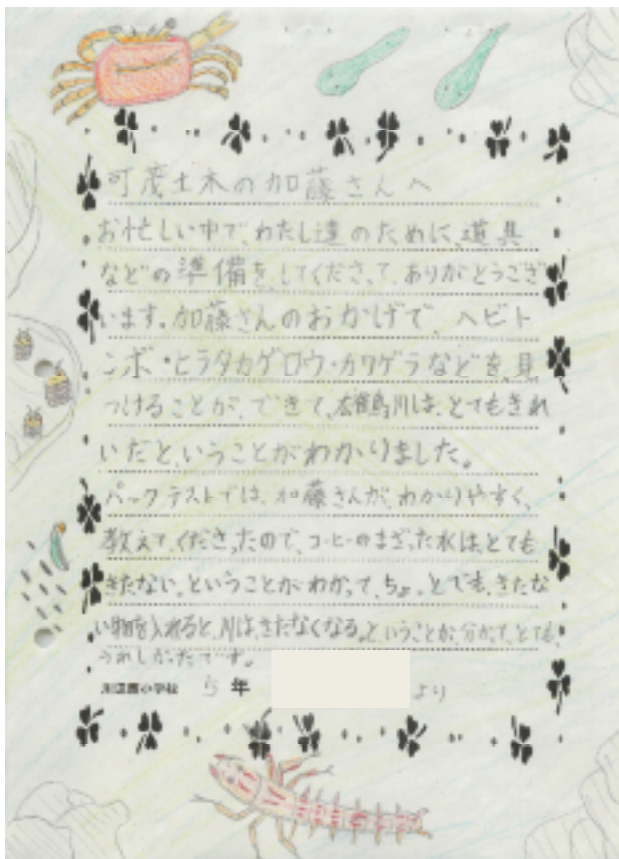 可茂土木の加藤さんへ
お忙しい中で、わたし達のために、道具
などの準備を、してくださって、ありがとうござ
います。加藤さんのおかげで、ヘビト
ンボ・ヒラタカゲロウ・カワゲラなどを、見
つけることが、できて、雄鶏川は、とてもきれ
いだと、いうことがわかりました。
パックテストでは、加藤さんが、わかりやすく、
教えて、くださったので、コーヒーのまざった水は、とても
きたない。ということがわかって、ちょっとでも、きたな
い物を入れると、川は、きたなくなる。と、いうことが、分かって、とても、
うれしかったです。
川辺西小学校 5年 より